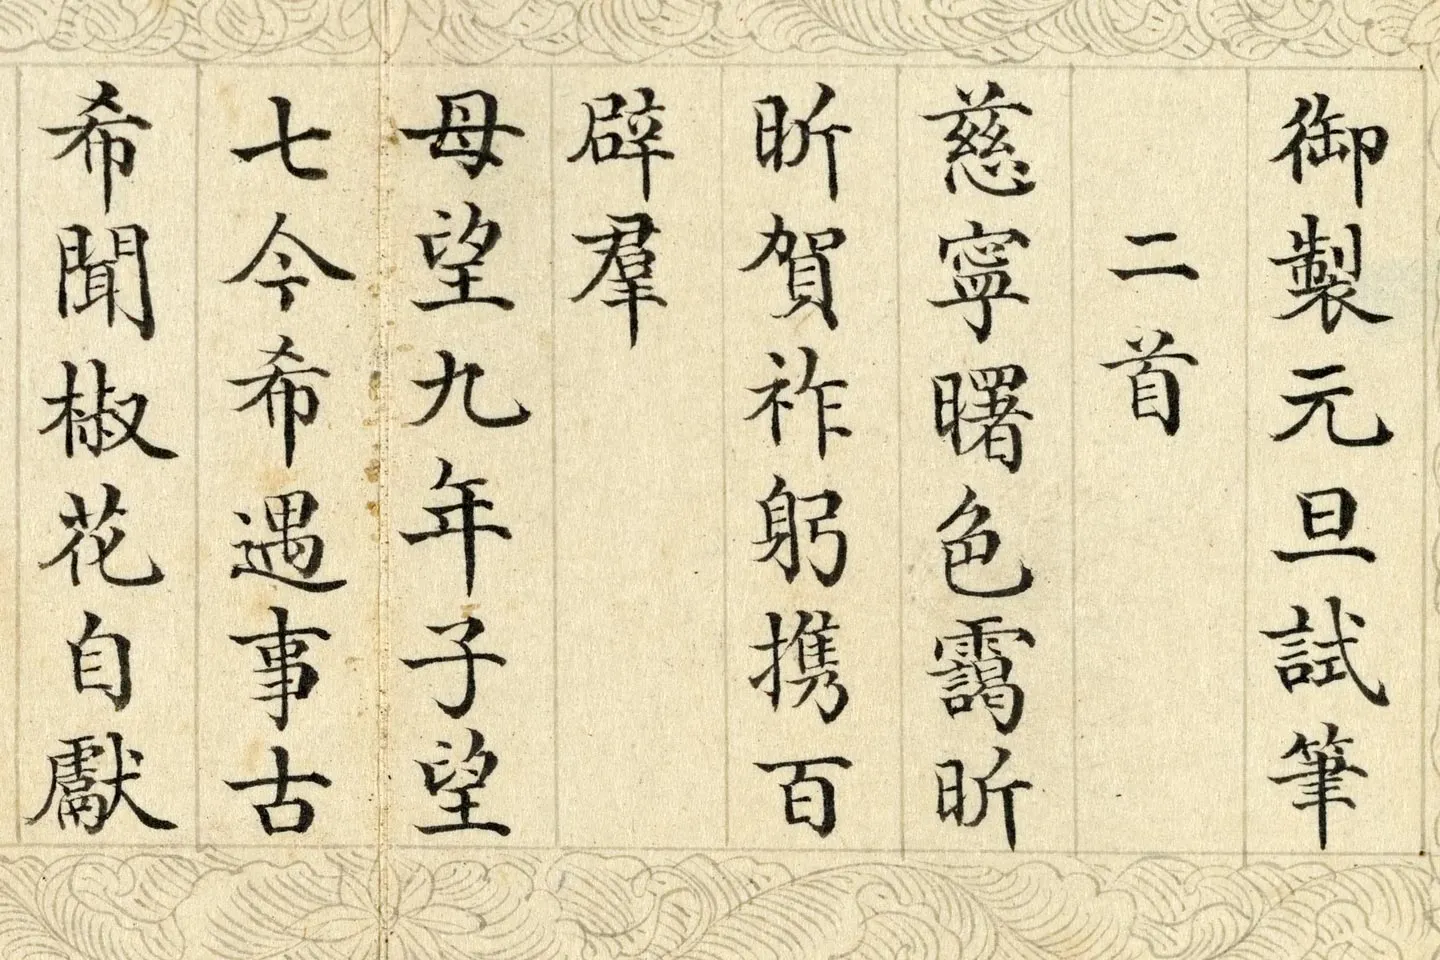 御製元旦試筆
二首
慈寧曙色靄昕
昕賀祚躬携百
辟羣
母望九年子望
七今希遇事古
希聞椒花自獻